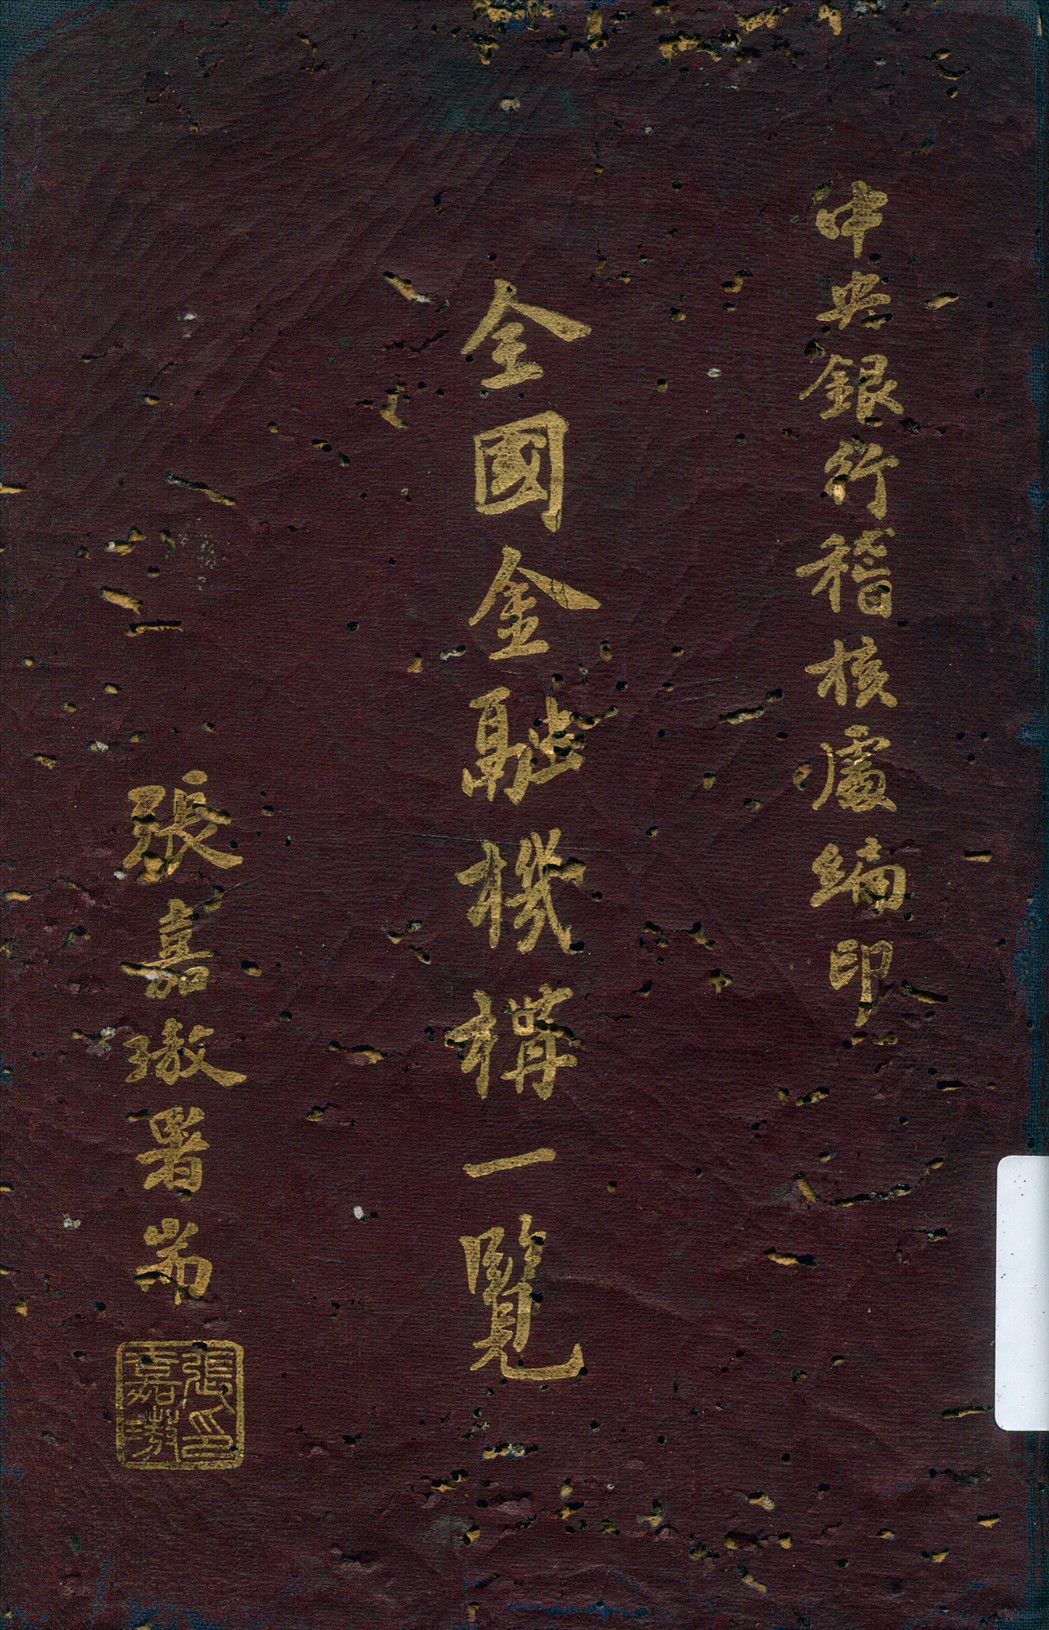 中央銀行稽核處編印
全國金融機構一覽
張嘉璈署耑
張印
嘉璈